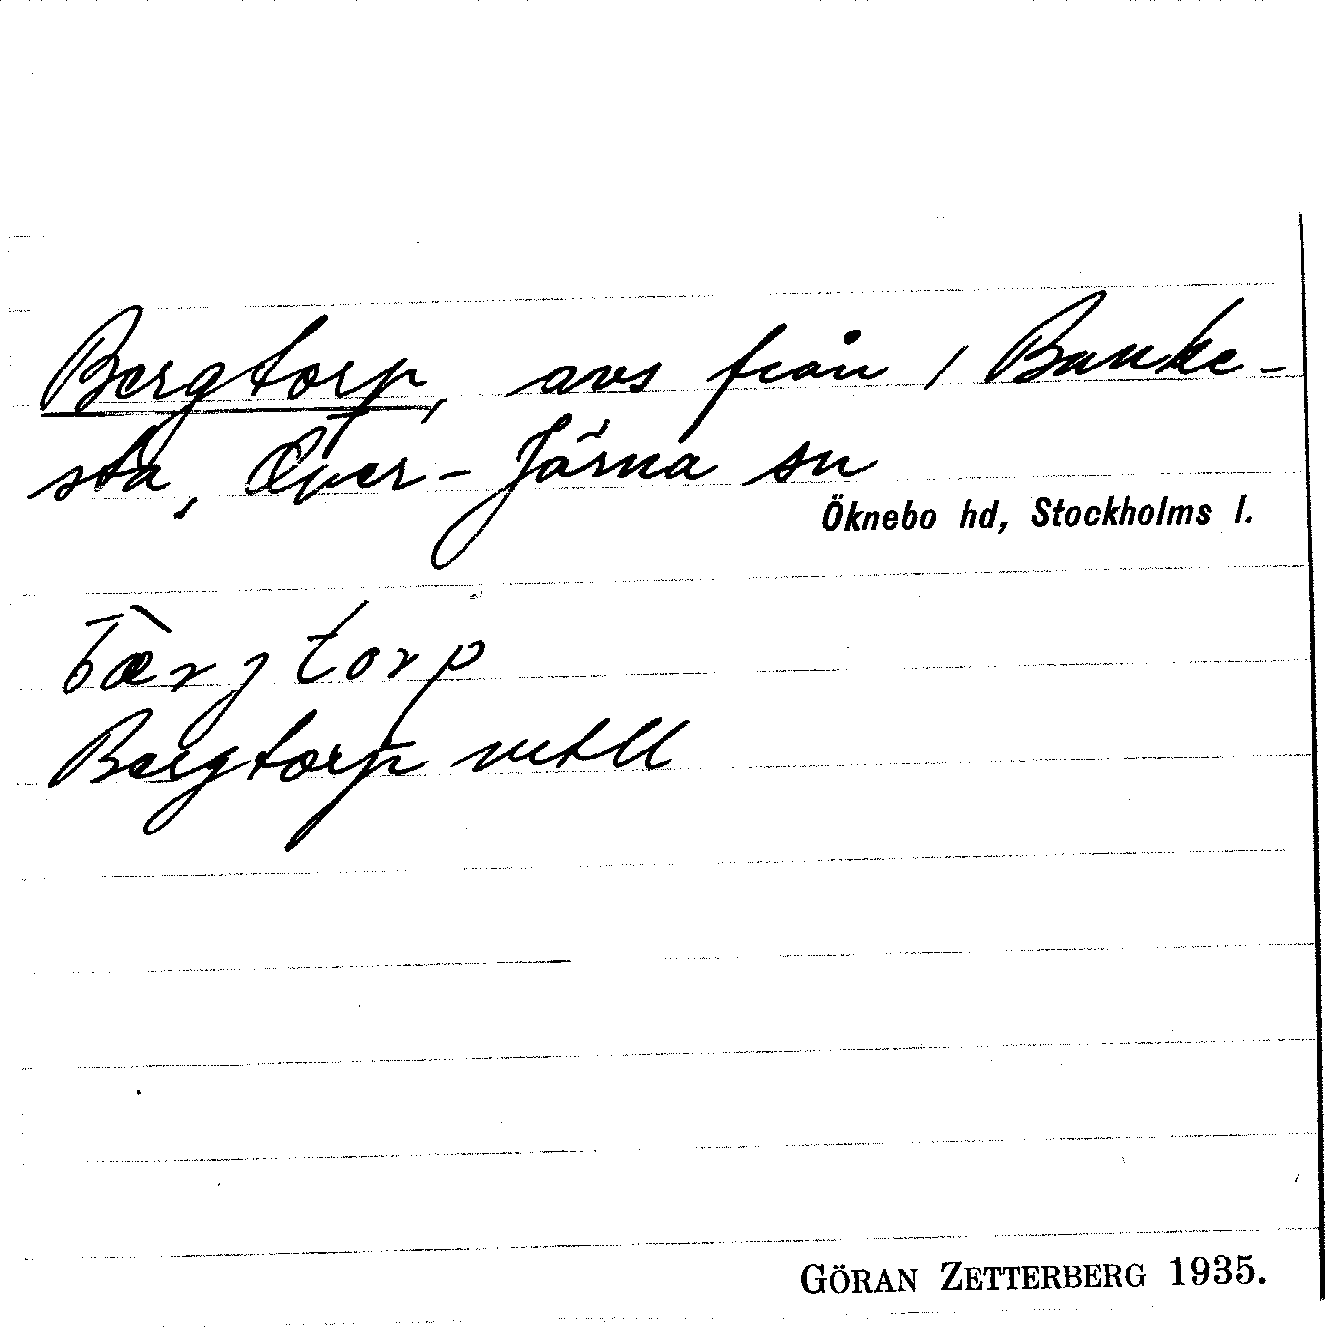 Bergtorp, avs från 1 Banke-
sta, Över-Järna sn
Öknebo hd, Stockholms l.
bæ̀rjtorp
Bergtorp
GÖRAN ZETTERBERG 1935.